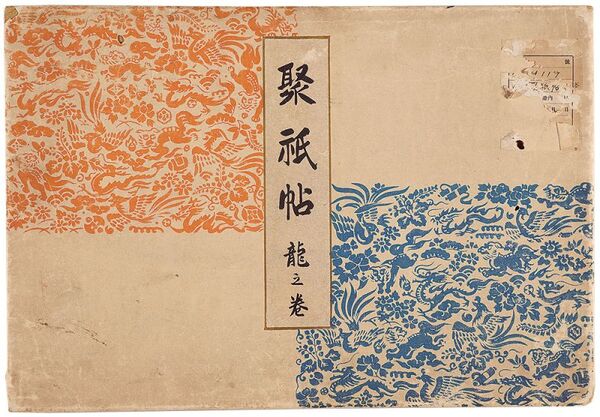 聚祇帖
龍之巻